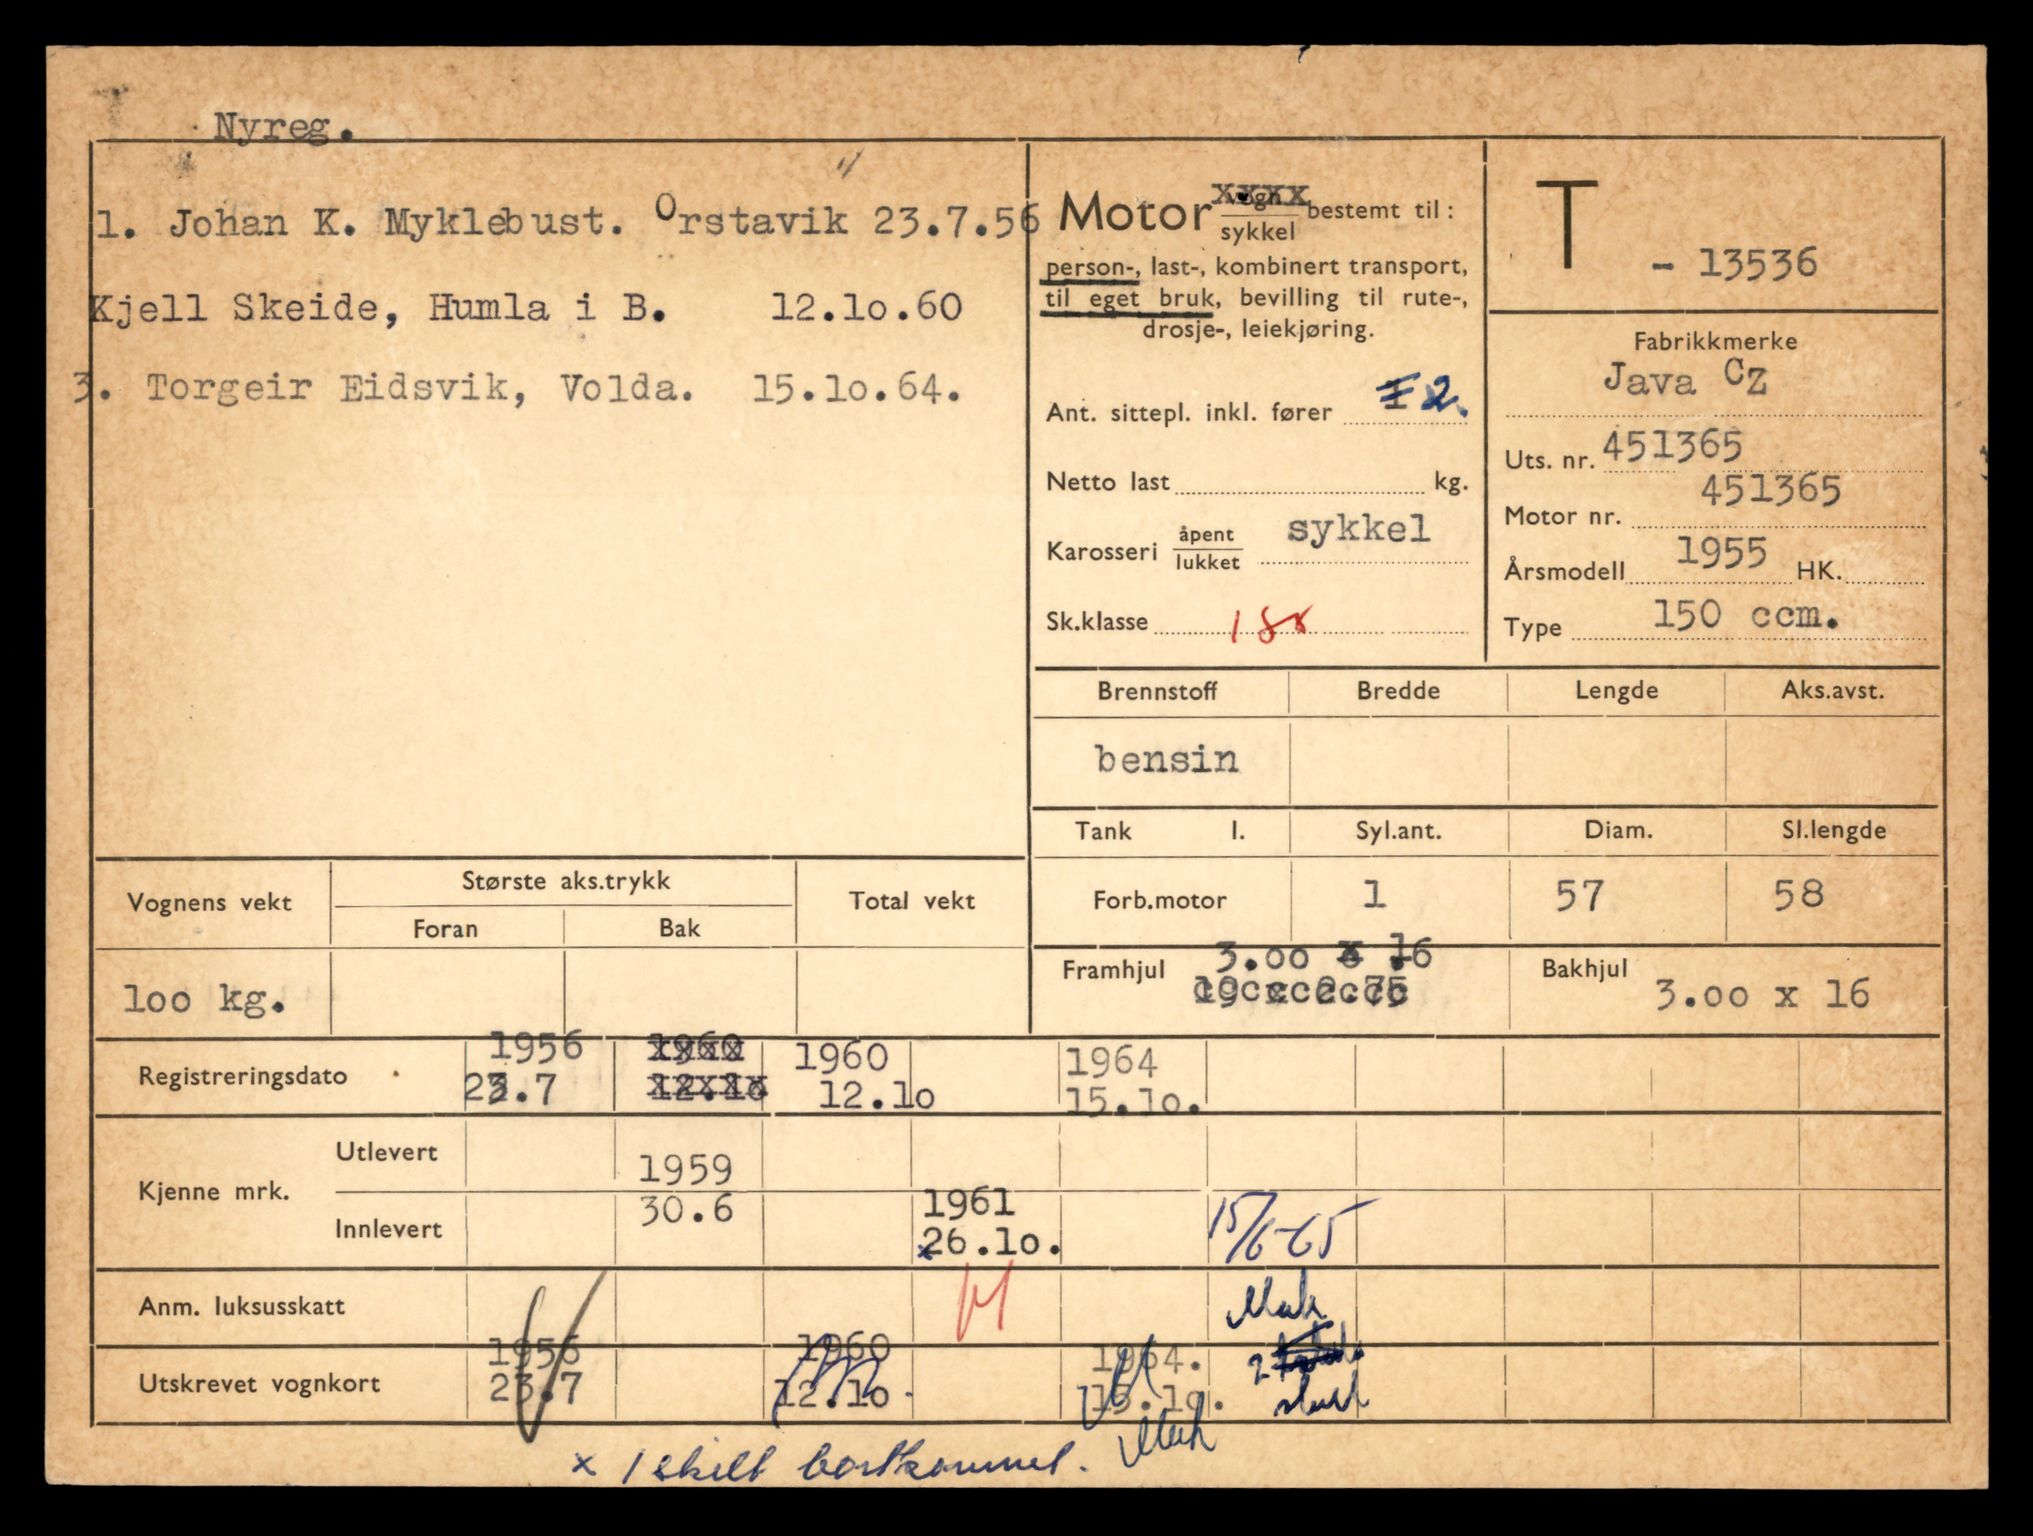 Nyreg.
1. Johan K. Myklebust. Orstavik 23.7.56
Kjell Skeide, Humla i B. 12.1o.60
3. Torgeir Eidsvik, Volda. 15.1o.64.
Motor vogn sykkel bestemt til:
person-, last-, kombinert transport,
til eget bruk, bevilling til rute-,
drosje-, leiekjøring.
Ant. sittepl. inkl. fører 2.
Netto last kg.
Karosseri åpent lukket sykkel
Sk.klasse
T - 13536
Fabrikkmerke
Java Cz
Uts. nr. 451365
Motor nr. 451365
Årsmodell 1955 HK.
Type 150 ccm.
Brennstoff Bredde Lengde Aks.avst.
bensin
Tank l. Syl.ant. Diam. Sl.lengde
Forb.motor 1 57 58
Framhjul 3.oo x 16
19 x 2.75
Bakhjul 3.oo x 16
Vognens vekt Største aks.trykk Total vekt
Foran Bak
1oo kg.
Registreringsdato 1956 1960 1960 1964
23.7 12.1o 12.1o 15.1o.
Kjenne mrk. Utlevert
Innlevert
1959
30.6
1961
x26.1o.
15/6-65
Anm. luksusskatt
Utskrevet vognkort 1956 1960 1964.
23.7 12.1o. 15.1o.
x 1 skilt bortkommet.